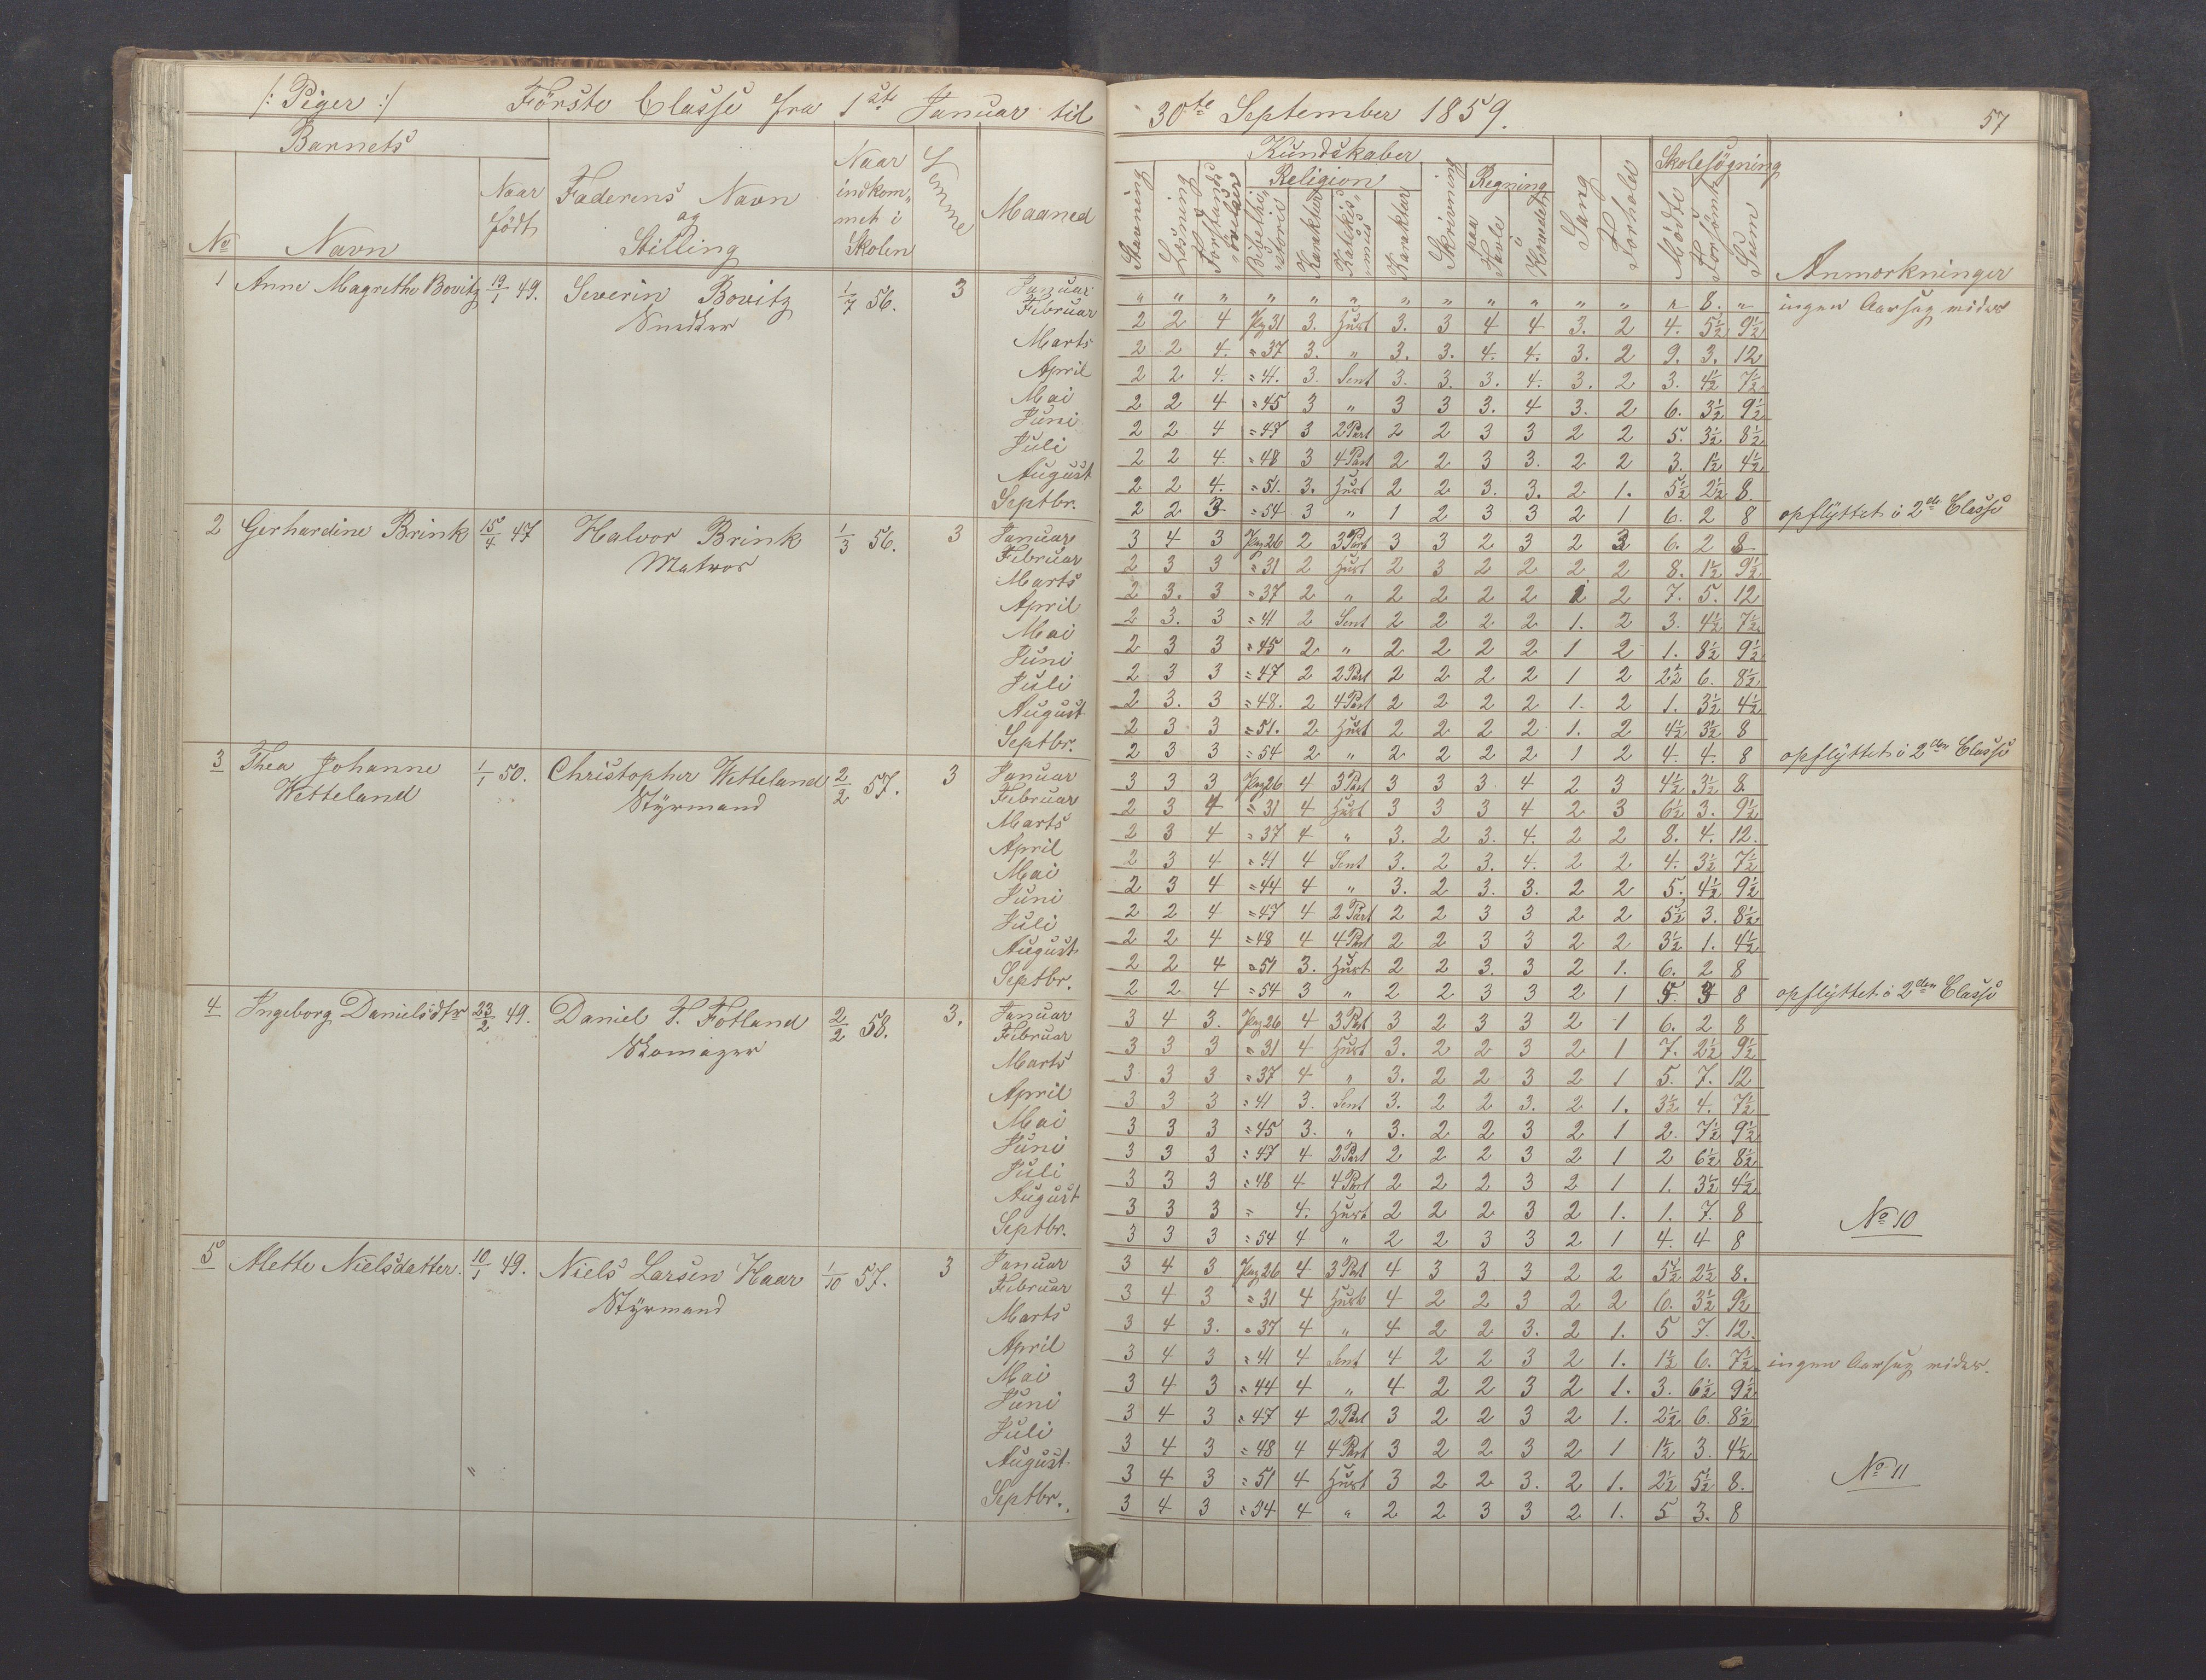 /: Piger :/ Förste Classe fra 1ste Januar til 30te September 1859. 57
Barnets
No
Navn
Naar født
Faderens Navn og Stilling
Naar indkommet i Skolen
Maaned
Kundskaber
Stavning
Læsning
Religion
Karakter
Karakter
Skrivning
Regning
paa Tavle
i Hovedet
Sang
Forhold
Skolesögning
Mödte
Forsömte
Sum
Anmærkninger
1 Anne Magrethe Bovitz 19/1 49. Severin Bovitz 1/7 56. 3
Snedker
Januar " " " " " " " " " " " " " 8. " ingen Aarsag
Februar 2 2 4 Pag 31 3. Hust 3. 3 4 4 3. 2 4. 5½ 9½
Marts 2 2 4. " 37 3. " 3. 3. 4. 4. 3. 2 9. 3. 12
April 2 2 4. " 41. 3. Sent 3. 3. 3. 4. 3. 2 3. 4½ 7½
Mai 2 2 4 " 45 3 " 3 3 3. 4 3. 2 6. 3½ 9½
Juni 2 2 4 " 47 3 2 Part 2 2 3 3 2 2 5. 3½ 8½
Juli 2 2 4. " 48 3 4 Part 2 2 3 3. 2 2 3. 1½ 4½
August 2 2 4. " 51. 3. Hust 2 2 3. 3. 2 1. 5½ 2½ 8
Septbr. 2 2 3 " 54 3 " 1 2 3 3 2 1 6. 2 8 opflyttet i 2de Classe
2 Gerhardine Brink 15/4 47 Halvor Brink 1/3 56. 3
Matros
Januar 3 4 3 Pag 26 2 3 Part 3 3 2 3 2 3 6. 2 8
Februar 2 3 3 " 31 2 Hust 2 3 2 2 2 2 8. 1½ 9½
Marts 2 3. 3 " 37 2 " 2 2 2 2 1 2 7. 5. 12
April 2 3. 3 " 41 2 Sent 2 2 2 2 1. 2 3. 4½ 7½
Mai 2 3 3 " 45 2 " 2 2 2 2 1 2 1. 8½ 9½
Juni 2 3 3 " 47 2 2 Part 2 2 2 2 1 2 2½ 6. 8½
Juli 2 3. 3 " 48. 2 4 Part 2 2 2 2 1. 2 1. 3½ 4½
August 2 3 3 " 51. 2 Hust 2 2 2 2 1. 2 4½ 3½ 8
Septbr. 2 3 3 " 54 2 " 2 2 2 2 1 2 4. 4. 8 opflyttet i 2den Classe
3 Thea Johanne 1/1 50. Christopher Wetteland 2/2 57. 3
Wetteland Styrmand
Januar 3 3 3 Pag 26 4 3 Part 3 3 3 4 2 3 4½ 3½ 8
Februar 2 3 4 " 31 4 Hust 3 3 3 4 2 3 6½ 3. 9½
Marts 2 3 4 " 37 4 " 3. 2 3. 4. 2 2 8. 4. 12.
April 2 3 4 " 41 4 Sent 3. 2 3. 4. 2 2 4. 3½ 7½
Mai 2 3 4 " 44 4 " 3. 2 3. 3. 2 2 5. 4½ 9½
Juni 2 2 4 " 47 4 2 Part 2 2 3 3 2 2 5½ 3. 8½
Juli 2 2 4 " 48 4 4 Part 2 2 3 3 2 2 3½ 1. 4½
August 2 2 4 " 51 3. Hust 2 2 3. 3 2 1. 6. 2 8
Septbr. 2 2 4 " 54 3 " 2 2 3 3 2 1 5 3 8 opflyttet i 2den Classe
4 Ingeborg Danielsdtr 23/2 49. Daniel T. Fotland 2/2 58. 3.
Skomager
Januar 3 4 3. Pag 26 4 3 Part 3 2 3 3 2 1 6. 2 8
Februar 3 3 3 " 31 4 Hust 3. 2 2 3 2 1 7. 2½ 9½
Marts 3 3 3 " 37 4 " 3. 2 2 3 2 1 5. 7. 12
April 3 3 3 " 41 3. Sent 3. 2 2 3. 2 1. 3½ 4. 7½
Mai 3 3 3 " 45 3. " 3. 2 2 3 2 1 2. 7½ 9½
Juni 3 3 3 " 47 4 2 Part 2 2 2 3 2 1 2 6½ 8½
Juli 3 3 3 " 48 4 4 Part 2 2 2 3 2 1 1. 3½ 4½
August 3 3 3 " 4. Hust 2 2 2 3 2 1. 1. 7. 8 No 10
Septbr. 3 3 3 " 54 4 " 2 2 3 3 2 1 4. 4 8
5 Mette Nielsdatter. 10/1 49. Niels Larsen Haar 1/10 57. 3
Styrmand
Januar 3 4 3 Pag 26 4 3 Part 4 3 3 3 2 2 5½ 2½ 8.
Februar 3 4 3 " 31 4 Hust 4 2 2 3 2 2 6. 3½ 9½
Marts 3 4 3. " 37 4 " 4 2 2 3. 2 1. 5 7. 12.
April 3 4 3 " 41 4 Sent 4 2 2 3 2 1. 1½ 6. 7½ ingen Aarsag
Mai 3 4 3 " 44 4 " 4 2 2 3 2 1. 3. 6½ 9½
Juni 3 4 3 " 47 4 2 Part 3 2 2 3 2 1. 2½ 6. 8½
Juli 3 4 3 " 48 4 4 Part 3 2 2 3 2 1 1½ 3. 4½
August 3 4 3 " 51 4 Hust 3 2 2 3. 2 1. 2½ 5½ 8. No 11
Septbr. 3 4 3 " 54 4 " 2 2 3 3 2 1. 5 3. 8